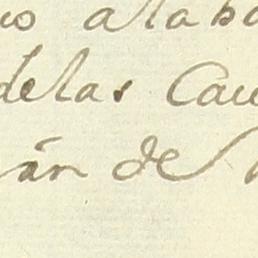 alaba
delas Cau
án de